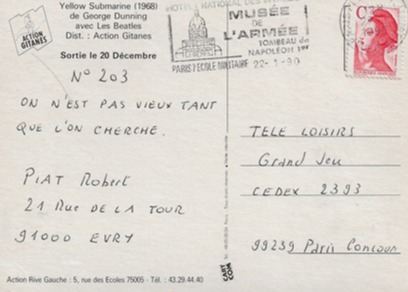 Yellow Submarine (1968)
de George Dunning
avec Les Beatles
Dist. : Action Gitanes
ACTION
GITANES
Sortie le 20 Décembre
N° 203
ON N'EST PAS VIEUX TANT
QUE L'ON CHERCHE.
PIAT Robert
21 Rue DE LA TOUR
91000 EVRY
Action Rive Gauche : 5, rue des Ecoles 75005 - Tél. : 43.29.44.40
CART
COM
HOTEL NATIONAL DES
MUSÉE
DE
L'ARMÉE
TOMBEAU de
NAPOLÉON 1er
PARIS 7 ECOLE MILITAIRE 22-1-90
TELE LOISIRS
Grand Jeu
CEDEX 2393
99239 Paris Concours